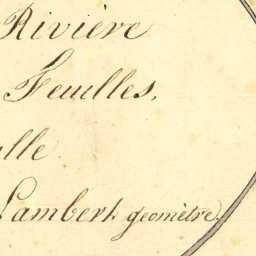 Rivière
Feuilles,
lle.
Lambert géomètre.